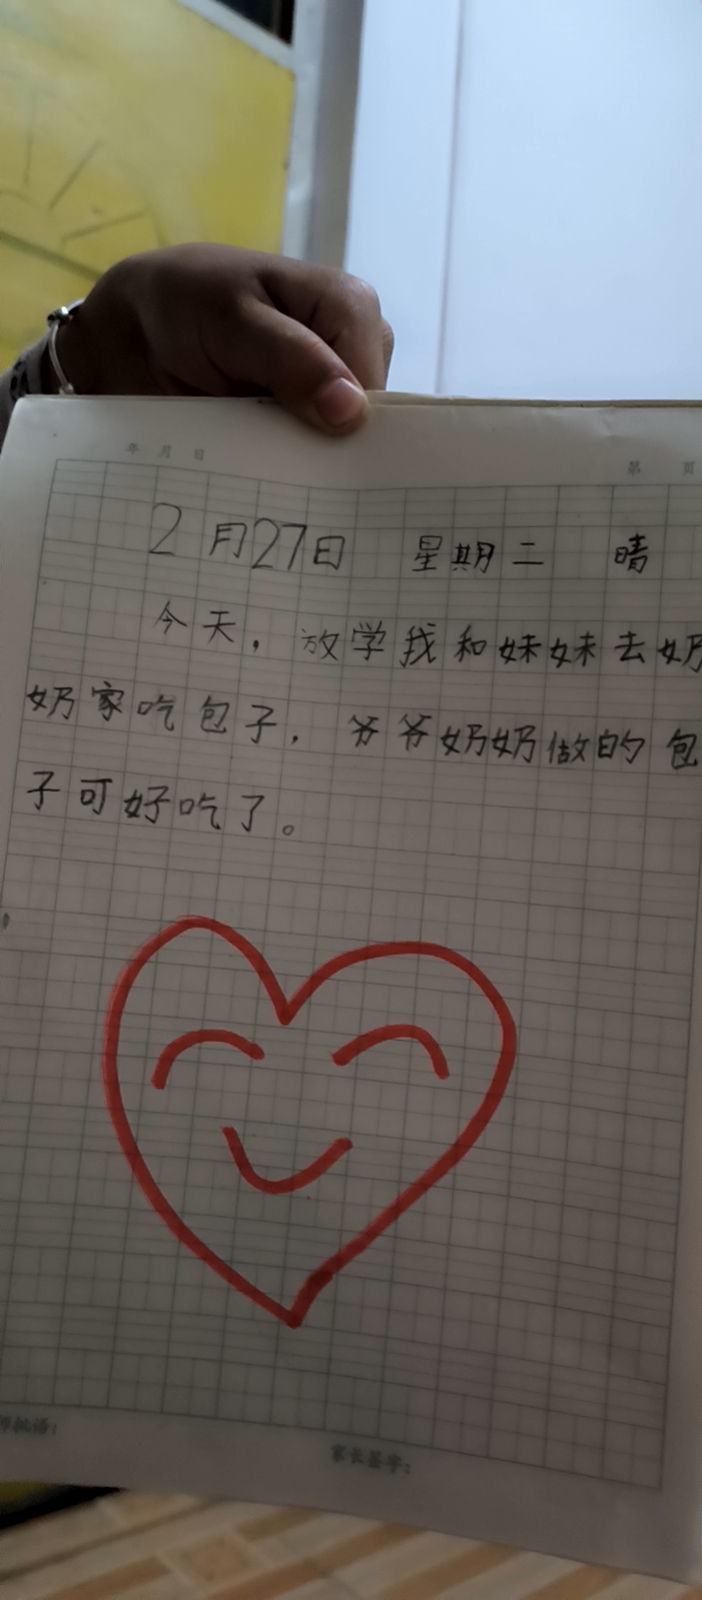 年 月 日
第 页
2月27日 星期二 晴
今天，放学我和妹妹去奶
奶家吃包子，爷爷奶奶做的包
子可好吃了。
师批语：
家长签字：